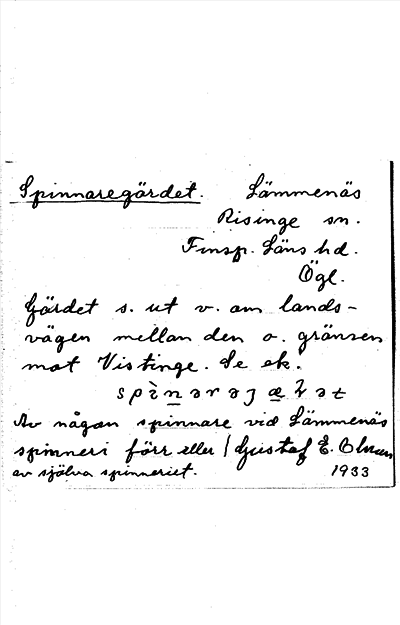 Spinnaregärdet. Lämmenäs
Risinge sn.
Finsp. Läns hd.
Ögl.
Gärdet s. ut v. om lands-
vägen mellan den o. gränsen
mot Vistinge. Se ek.
Av någon spinnare vid Lämmenäs
spinneri förr eller / Gustaf E. Olsson
av själva spinneriet. 1933